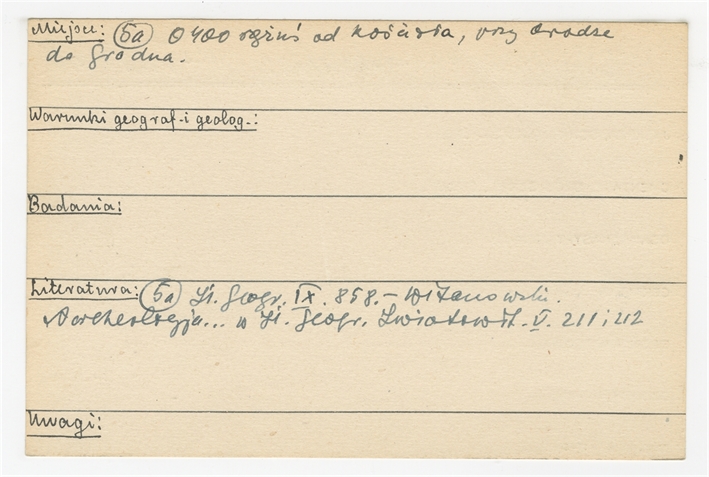 Miejsce: (5a) O 400 sążni od kościoła, przy drodze
do Grodna.
Warunki geograf.-i geolog.:
Badania:
Literatura: (5a) Sł. Geogr. IX. 858. – Witanowski.
Archeologja... w Sł. Geogr. Światowit. V. 211 i 212
Uwagi: